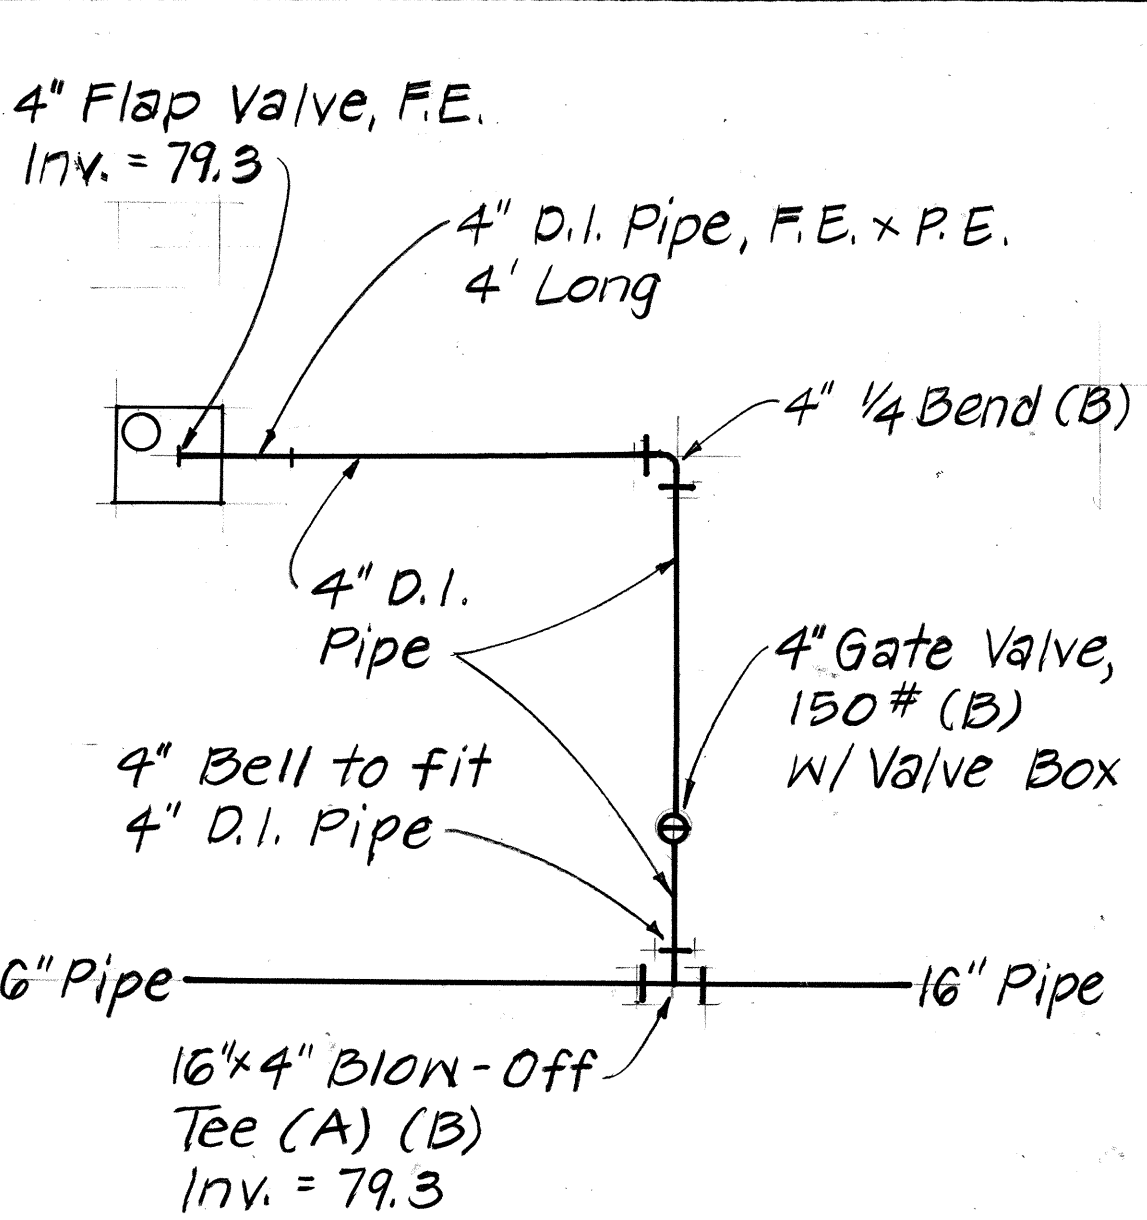 4" Flap Valve, F.E.
Inv. = 79.3
4" D.I. Pipe, F.E. x P.E.
4' Long
4" 1/4 Bend (B)
4" D.I.
Pipe
4" Gate Valve,
150# (B)
w/ Valve Box
4" Bell to fit
4" D.I. Pipe
6" Pipe
16" Pipe
16"x4" Blow-Off
Tee (A) (B)
Inv. = 79.3